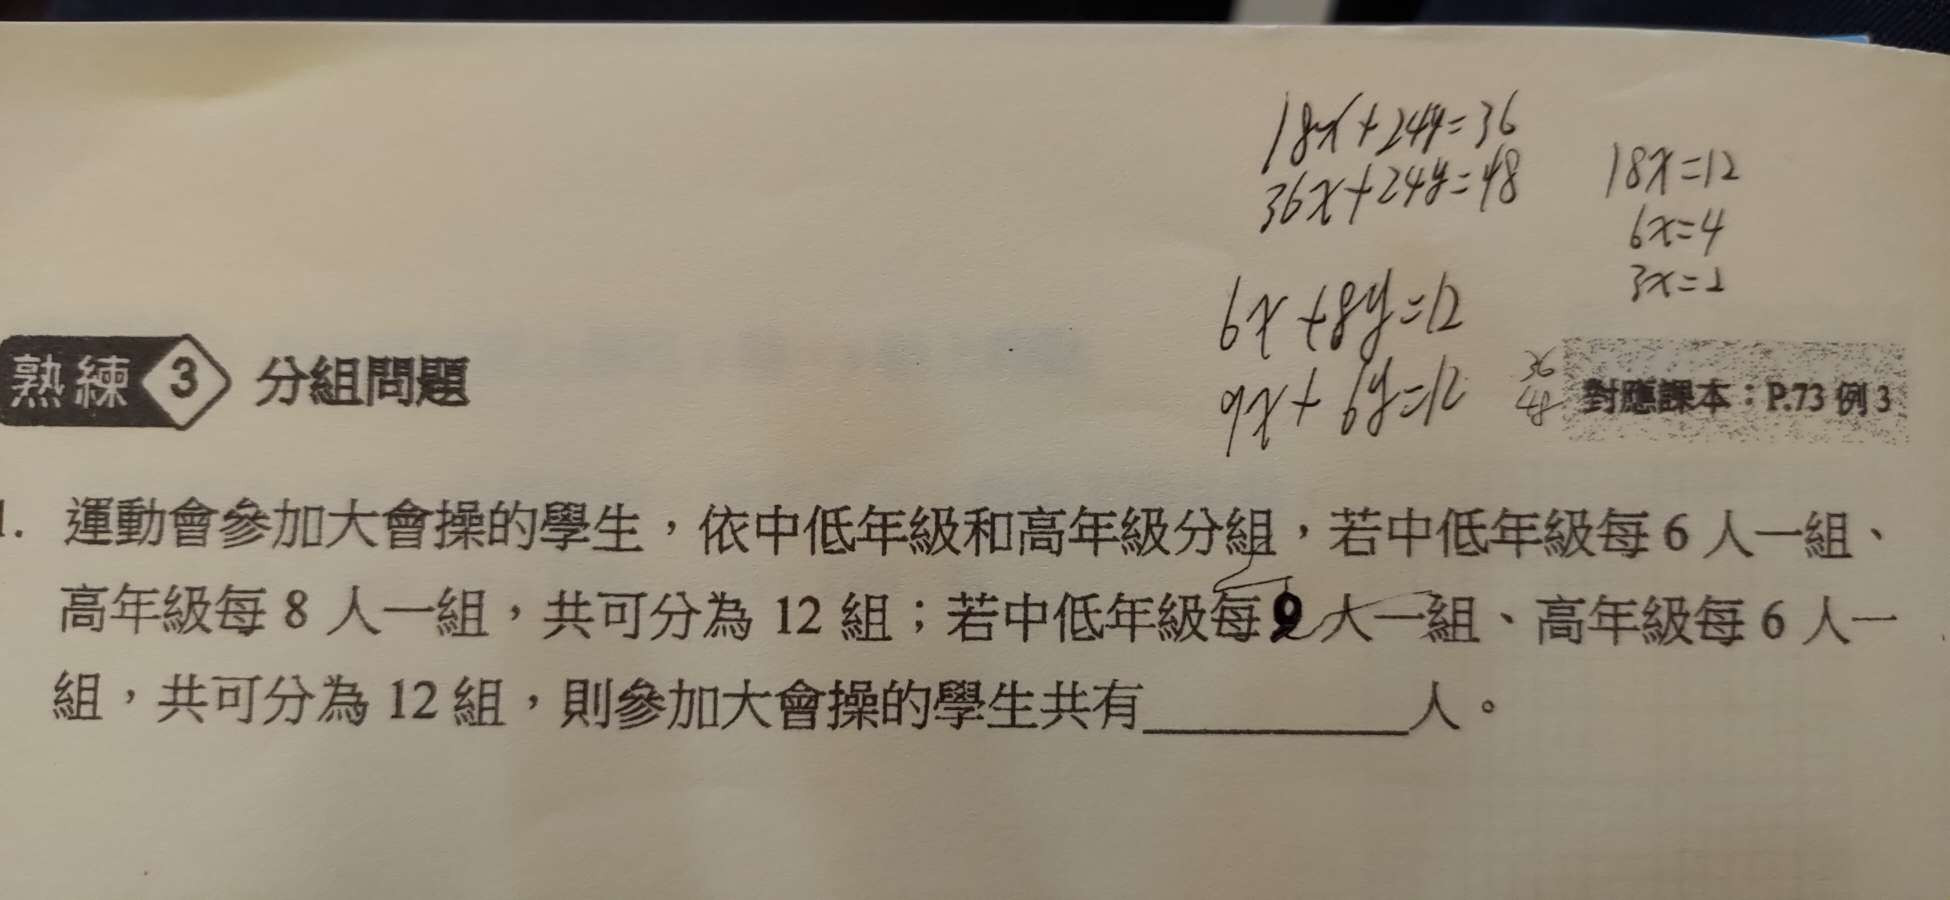 18x+24y=36
36x+24y=48
18x=12
6x=4
3x=2
6x+8y=12
9x+6y=12
36
48
熟練 3 分組問題
對應課本：P.73 例 3
1. 運動會參加大會操的學生，依中低年級和高年級分組，若中低年級每 6 人一組、
高年級每 8 人一組，共可分為 12 組；若中低年級每 9 人一組、高年級每 6 人一
組，共可分為 12 組，則參加大會操的學生共有________人。